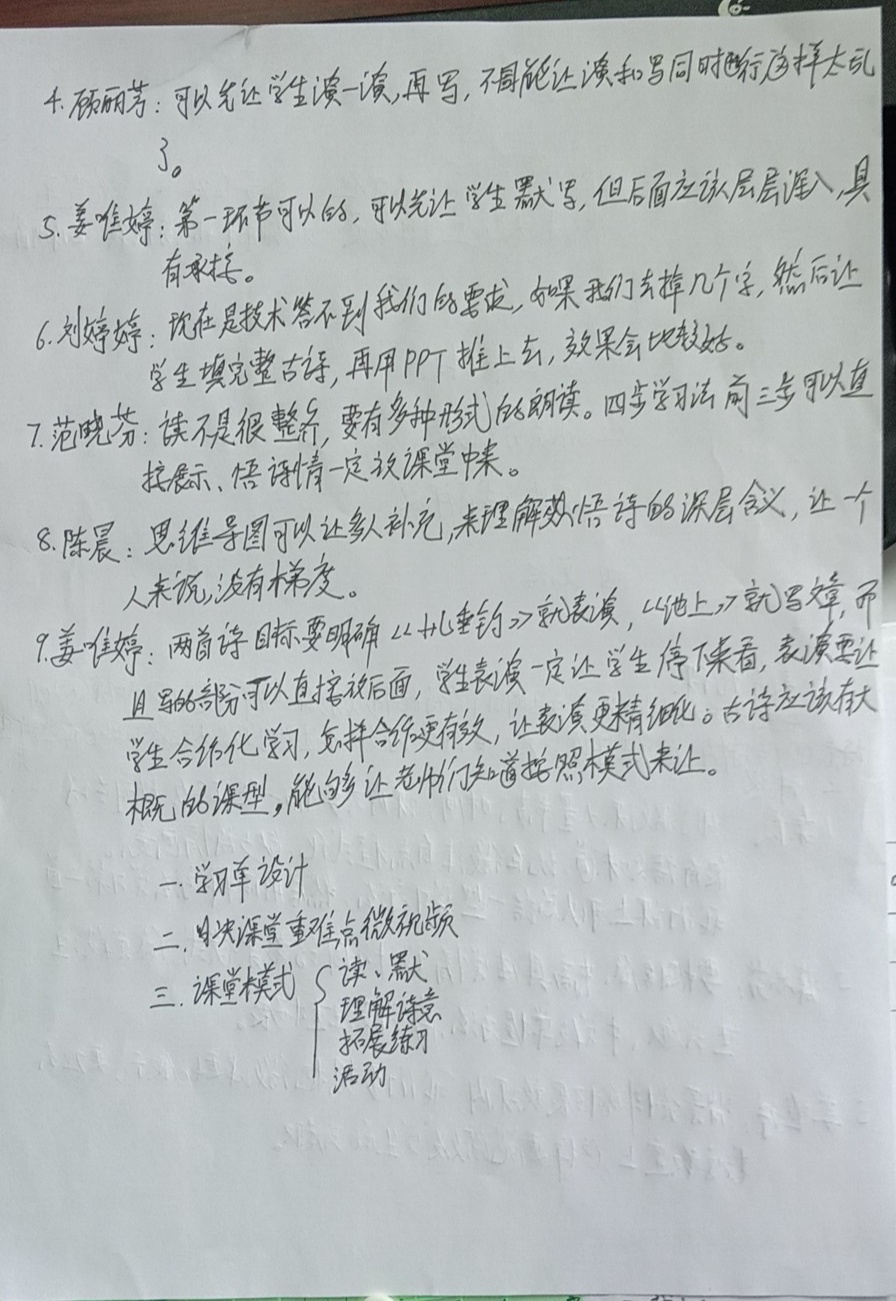 4. 顾丽芳：可以先让学生演一演,再写，不能让演和写同时进行这样太乱
了。
5. 姜唯婷：第一环节可以的，可以先让学生默写，但后面应该层层深入,具
有承接。
6. 刘婷婷：现在是技术答不到我们的要求，如果我们去掉几个字，然后让
学生填完整古诗，再用PPT推上去，效果会比较好。
7. 范晓芬：读不是很整齐，要有多种形式的朗读。四步学习法前三步可以直
接展示、悟诗情一定放课堂中来。
8. 陈晨：思维导图可以让多人补充,来理解悟诗的深层含义，让一个
人来说,没有梯度。
9. 姜唯婷：两首诗目标要明确《小儿垂钓》就表演，《池上》就写文章，而
且写的部分可以直接放后面，学生表演一定让学生停下来看，表演要让
学生合作化学习，怎样合作更有效，让表演更精细化。古诗应该有大
概的课型,能够让老师们知道按照模式来让。
一. 学习单设计
二. 解决课堂重难点微视频
三. 课堂模式 { 读、默
理解诗意
拓展练习
活动